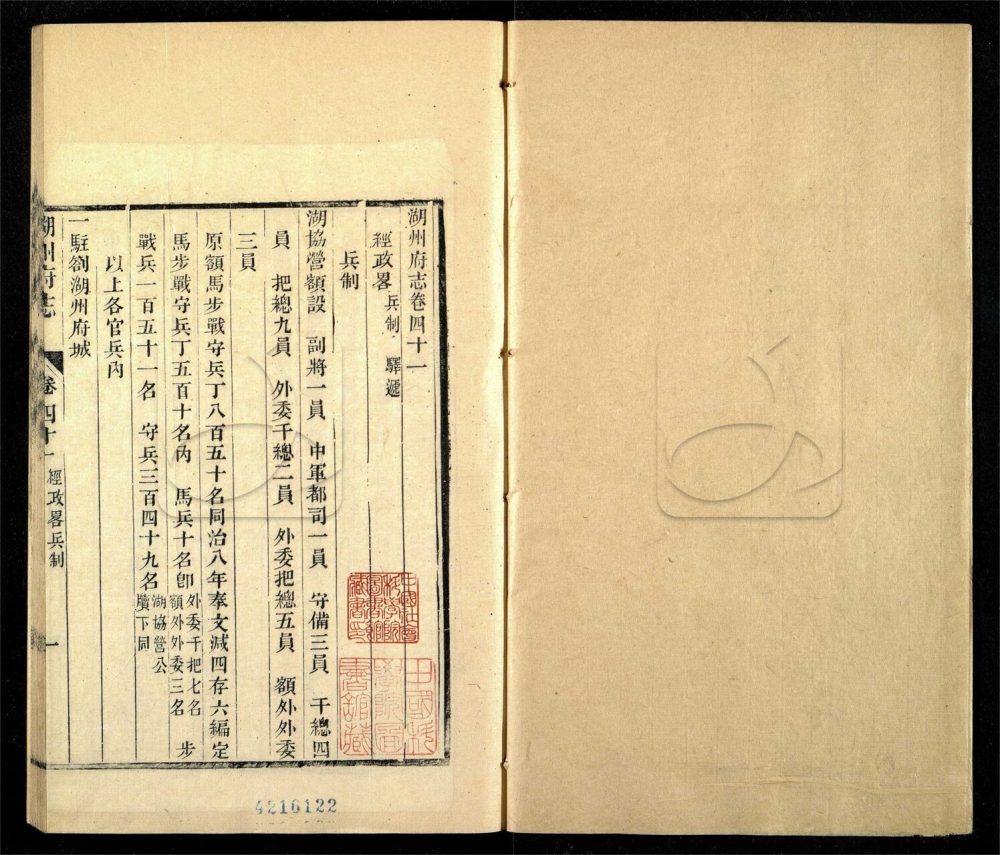 湖州府志卷四十一
經政畧 兵制 驛遞
兵制
湖協營額設 副將一員 中軍都司一員 守備三員 千總四
員 把總九員 外委千總二員 外委把總五員 額外外委
三員
原額馬步戰守兵丁八百五十名同治八年奉文減四存六編定
馬步戰守兵丁五百十名內 馬兵十名卽外委千把七名額外外委三名 步
戰兵一百五十一名 守兵三百四十九名湖協營公牘下同
以上各官兵內
一駐劄湖州府城
湖州府志 卷四十一 經政畧兵制 一
中國社會科學院圖書館藏書印
4216122